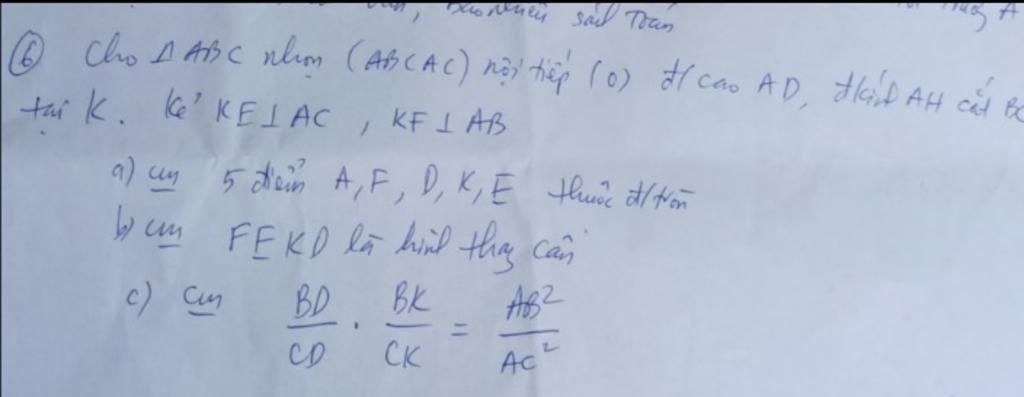 sách Toán
⑥ Cho △ABC nhọn (AB<AC) nội tiếp (O) đ/cao AD, đkính AH cắt BC
tại K. Kẻ KE⊥AC , KF⊥AB
a) cm 5 điểm A, F, D, K, E thuộc đ/tròn
b) cm FEKD là hình thang cân
c) cm BD/CD . BK/CK = AB²/AC²